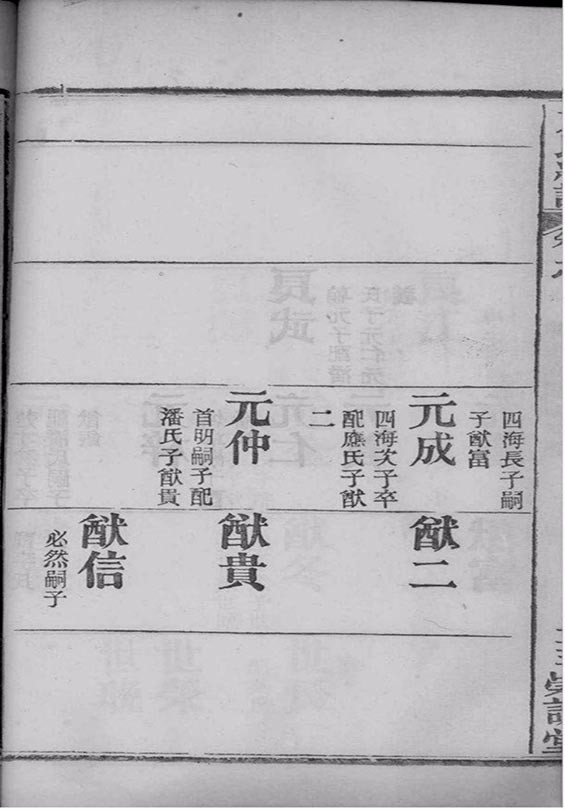 四海長子嗣
子猷富
元成
四海次子卒
配應氏子猷
二
元仲
首明嗣子配
潘氏子猷貴
猷二
猷貴
猷信
必然嗣子